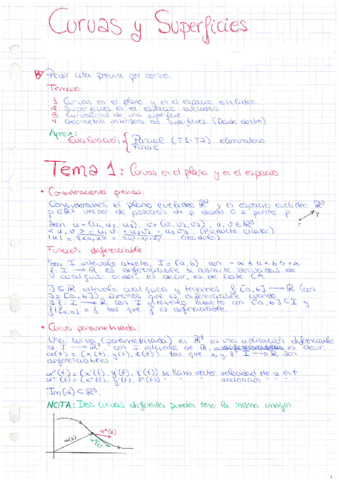 Curvas y Superficies
Pedir cita previa por correo.
Temario:
1. Curvas en el plano y en el espacio euclídeo.
2. Superficies en el espacio euclídeo.
3. Curvaturas de una superficie
4. Geometría intrínseca de superficies. (Desde dentro)
Aprox:
Evaluación { Parcial (T1-T2) eliminatorio
Final
Tema 1: Curvas en el plano y en el espacio
• Consideraciones previas:
Consideramos el plano euclídeo ℝ² y el espacio euclídeo ℝ³
p ∈ ℝ³ vector de posición de p desde 0 ≡ punto p
Son u = (u₁, u₂, u₃), v = (v₁, v₂, v₃), u, v ∈ ℝ³
< u, v > = u₁v₁ + u₂v₂ + u₃v₃ (Producto escalar)
(módulo)
Función diferenciable
Sea I intervalo abierto, I = (a, b) con -∞ ≤ a < b ≤ +∞
f: I → ℝ es diferenciable si admite derivadas de
cualquier orden, es decir, es de clase
J ⊆ ℝ intervalo cualquiera y tenemos f: [a, b] → ℝ (con
J = [a, b]), diremos que es diferenciable cuando
∃ f̃: I → ℝ con I intervalo abierto con [a, b] ⊆ I y
tal que f̃ es diferenciable
• Curva parametrizada:
Una curva (parametrizada) en ℝ³ es una aplicación diferenciable
α: I → ℝ³ con I intervalo de ℝ, es decir
α(t) = (x(t), y(t), z(t)) tal que x, y, z: I → ℝ son
diferenciables
α'(t) = (x'(t), y'(t), z'(t)) se llama vector velocidad de α en t
α''(t) = (x''(t), y''(t), z''(t)) " " " aceleración " " "
Im(α) ⊆ ℝ³
NOTA: Dos curvas diferentes pueden tener la misma imagen
α(t)
α'(t)